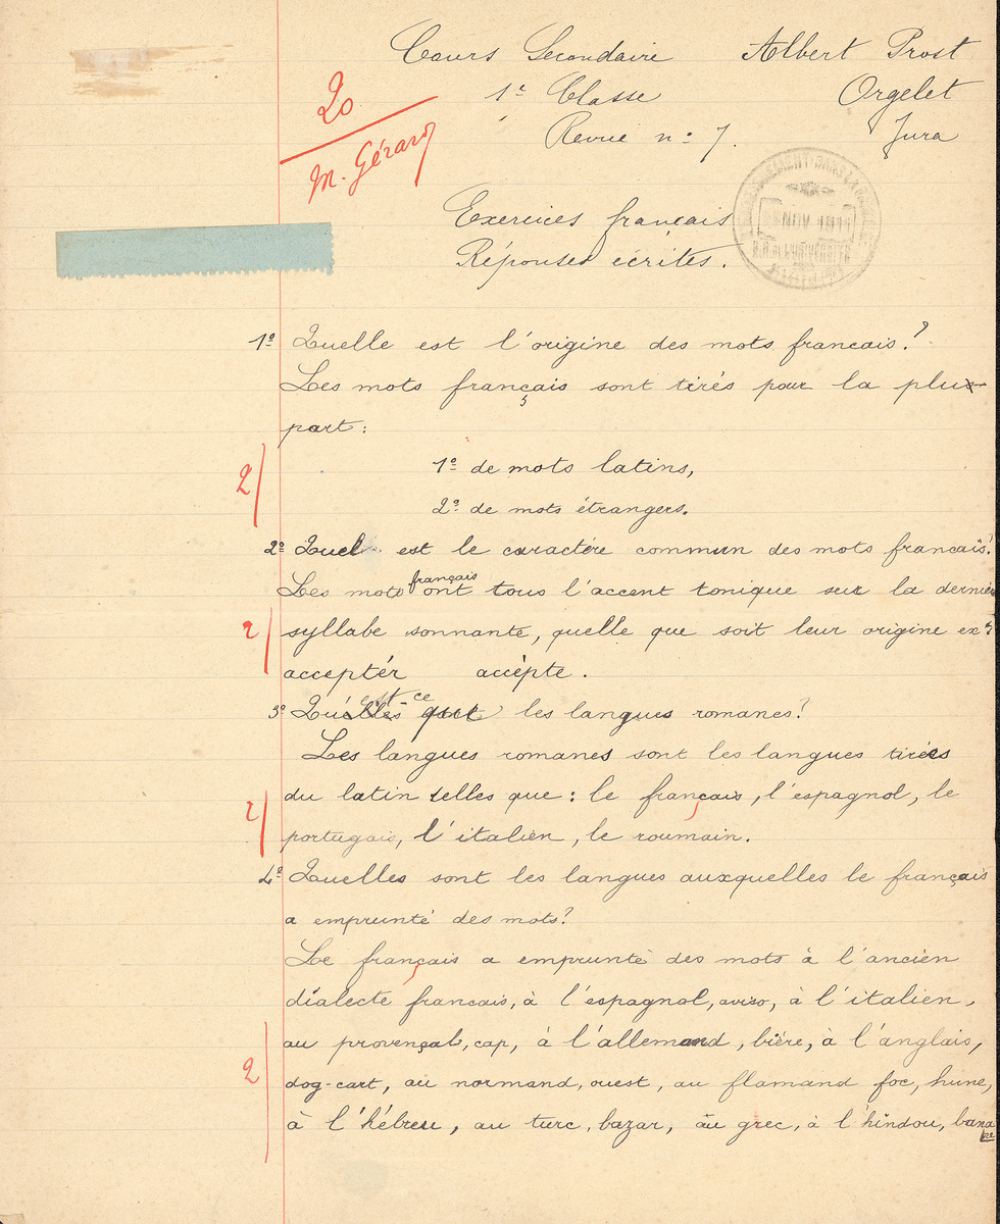 Cours Secondaire Albert Prost
20
1e Classe Orgelet
M. Gérard
Revue n: 7. Jura
NOV
Exercices français
Réponses écrites.
1º Quelle est l'origine des mots francais?
Les mots français sont tirés pour la plu-
part:
2
1º de mots latins,
2º de mots étrangers.
2º Quel est le caractère commun des mots francais?
Les mots français ont tous l'accent tonique sur la dernièr
2 syllabe sonnante, quelle que soit leur origine ex:
acceptér accèpte.
3º Qu'est-ce que les langues romanes?
Les langues romanes sont les langues tirées
2 du latin telles que: le français, l'espagnol, le
portugais, l'italien, le roumain.
4º Quelles sont les langues auxquelles le français
a emprunté des mots?
Le français a emprunté des mots à l'ancien
dialecte francais, à l'espagnol, aviso, à l'italien,
au provençal, cap, à l'allemand, bière, à l'anglais,
2 dog-cart, au normand, ouest, au flamand foc, hune,
à l'hébreu, au turc, bazar, au grec, à l'hindou, bana
ne